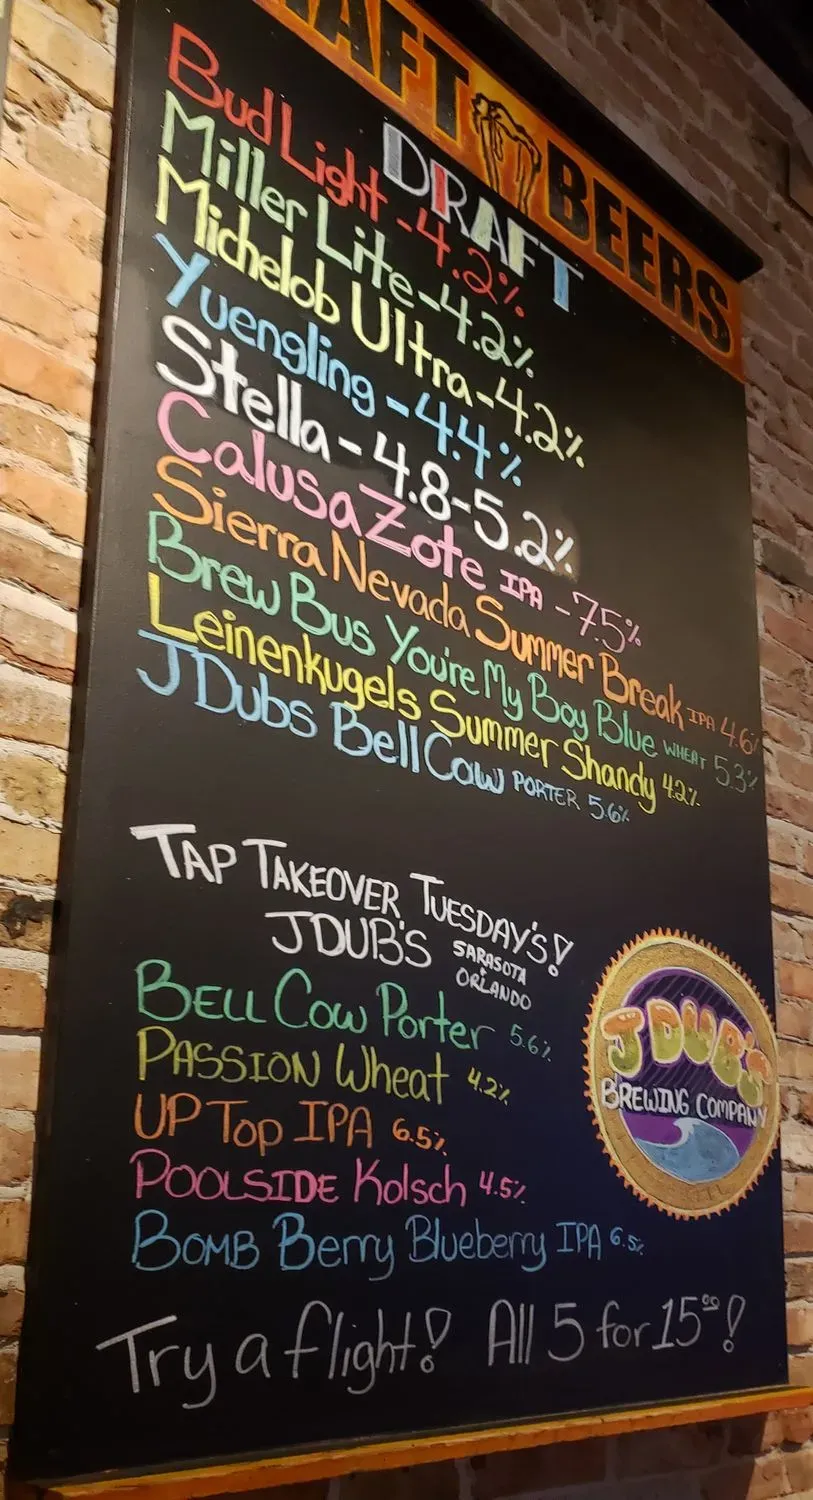 RAFT BEERS
DRAFT
Bud Light - 4.2%
Miller Lite - 4.2%
Michelob Ultra - 4.2%
Yuengling - 4.4%
Stella - 4.8-5.2%
Calusa Zote IPA - 7.5%
Sierra Nevada Summer Break IPA 4.6%
Brew Bus You're My Boy Blue WHEAT 5.3%
Leinenkugels Summer Shandy 4.2%
JDubs Bell Cow PORTER 5.6%
TAP TAKEOVER TUESDAY'S!
JDUB'S SARASOTA + ORLANDO
BELL Cow Porter 5.6%
PASSION Wheat 4.2%
UP Top IPA 6.5%
POOLSIDE Kolsch 4.5%
BOMB Berry Blueberry IPA 6.5%
JDUB'S
BREWING COMPANY
Try a flight! All 5 for 15.00!